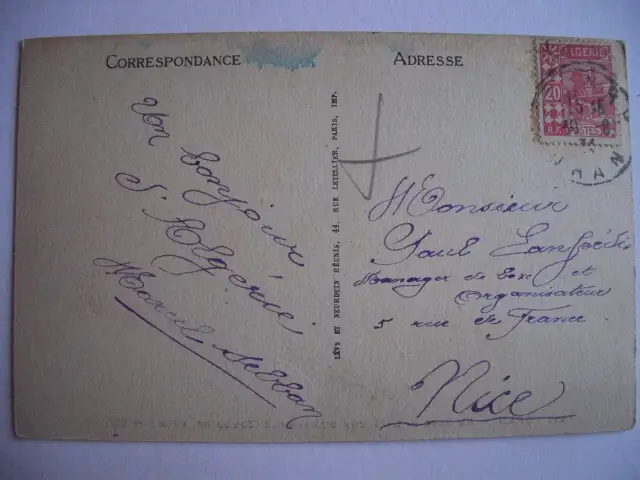 CORRESPONDANCE
Un bonjour
d'Algérie
Marcel
LÉVY ET NEURDEIN RÉUNIS, 44, RUE LETELLIER, PARIS, IMP.
ADRESSE
ALGERIE
20
R.F. POSTES
Monsieur
Paul
Manager de Boxe et
Organisateur
5 rue de France
Nice